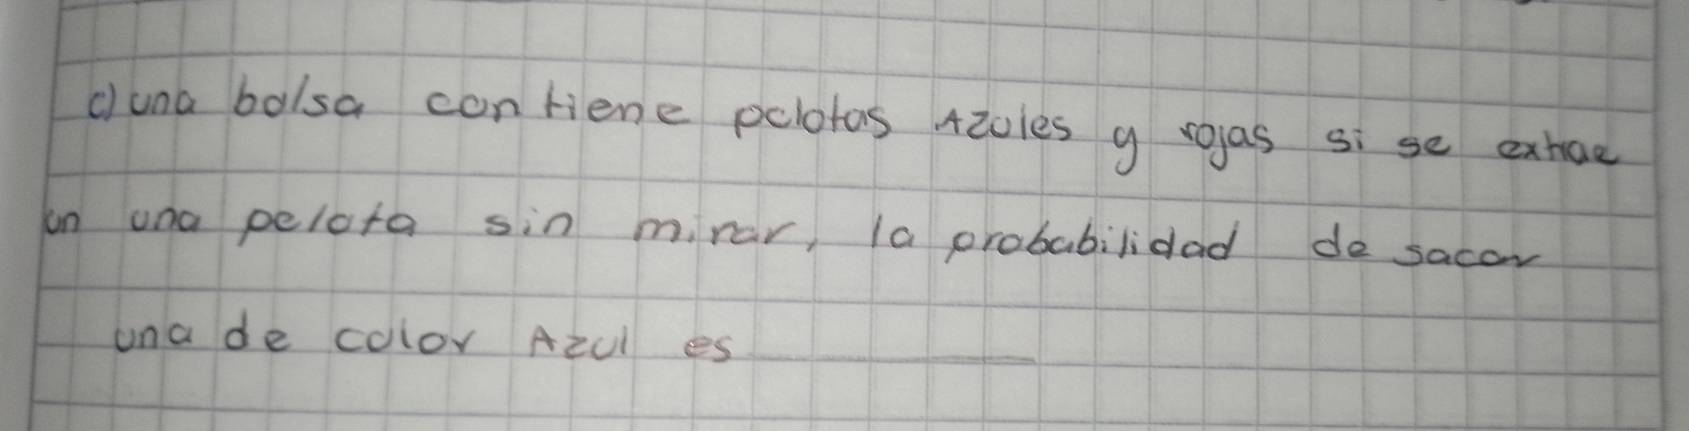 c) una bolsa contiene pelotas Azules y rojas si se extrae
un una pelota sin mirar, la probabilidad de sacar
una de color Azul es